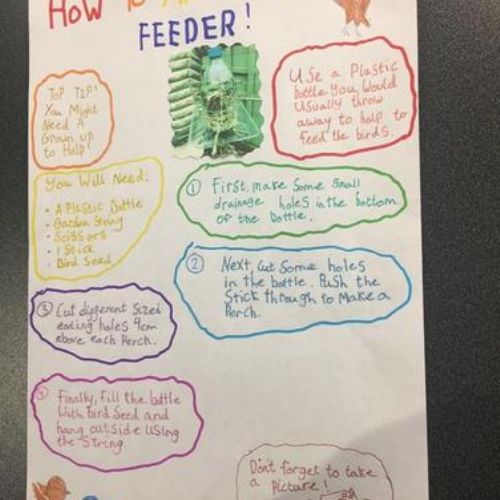 How to
FEEDER!
Use a Plastic
bottle you Would
Usually throw
away to help to
feed the birds.
Top TIP!
You Might
Need A
Grown up
to Help!
You Will Need:
• A Plastic Bottle
• Garden String
• Scissors
• 1 Stick
• Bird Seed
① First, make Some Small
drainage holes in the bottom
of the bottle.
② Next, Cut Some holes
in the bottle. Push the
Stick through to Make a
Perch.
③ Cut different Sized
eating holes 4cm
above each Perch.
Finally, fill the bottle
With bird Seed and
hang outside Using
the String.
Don't forget to take
a picture!